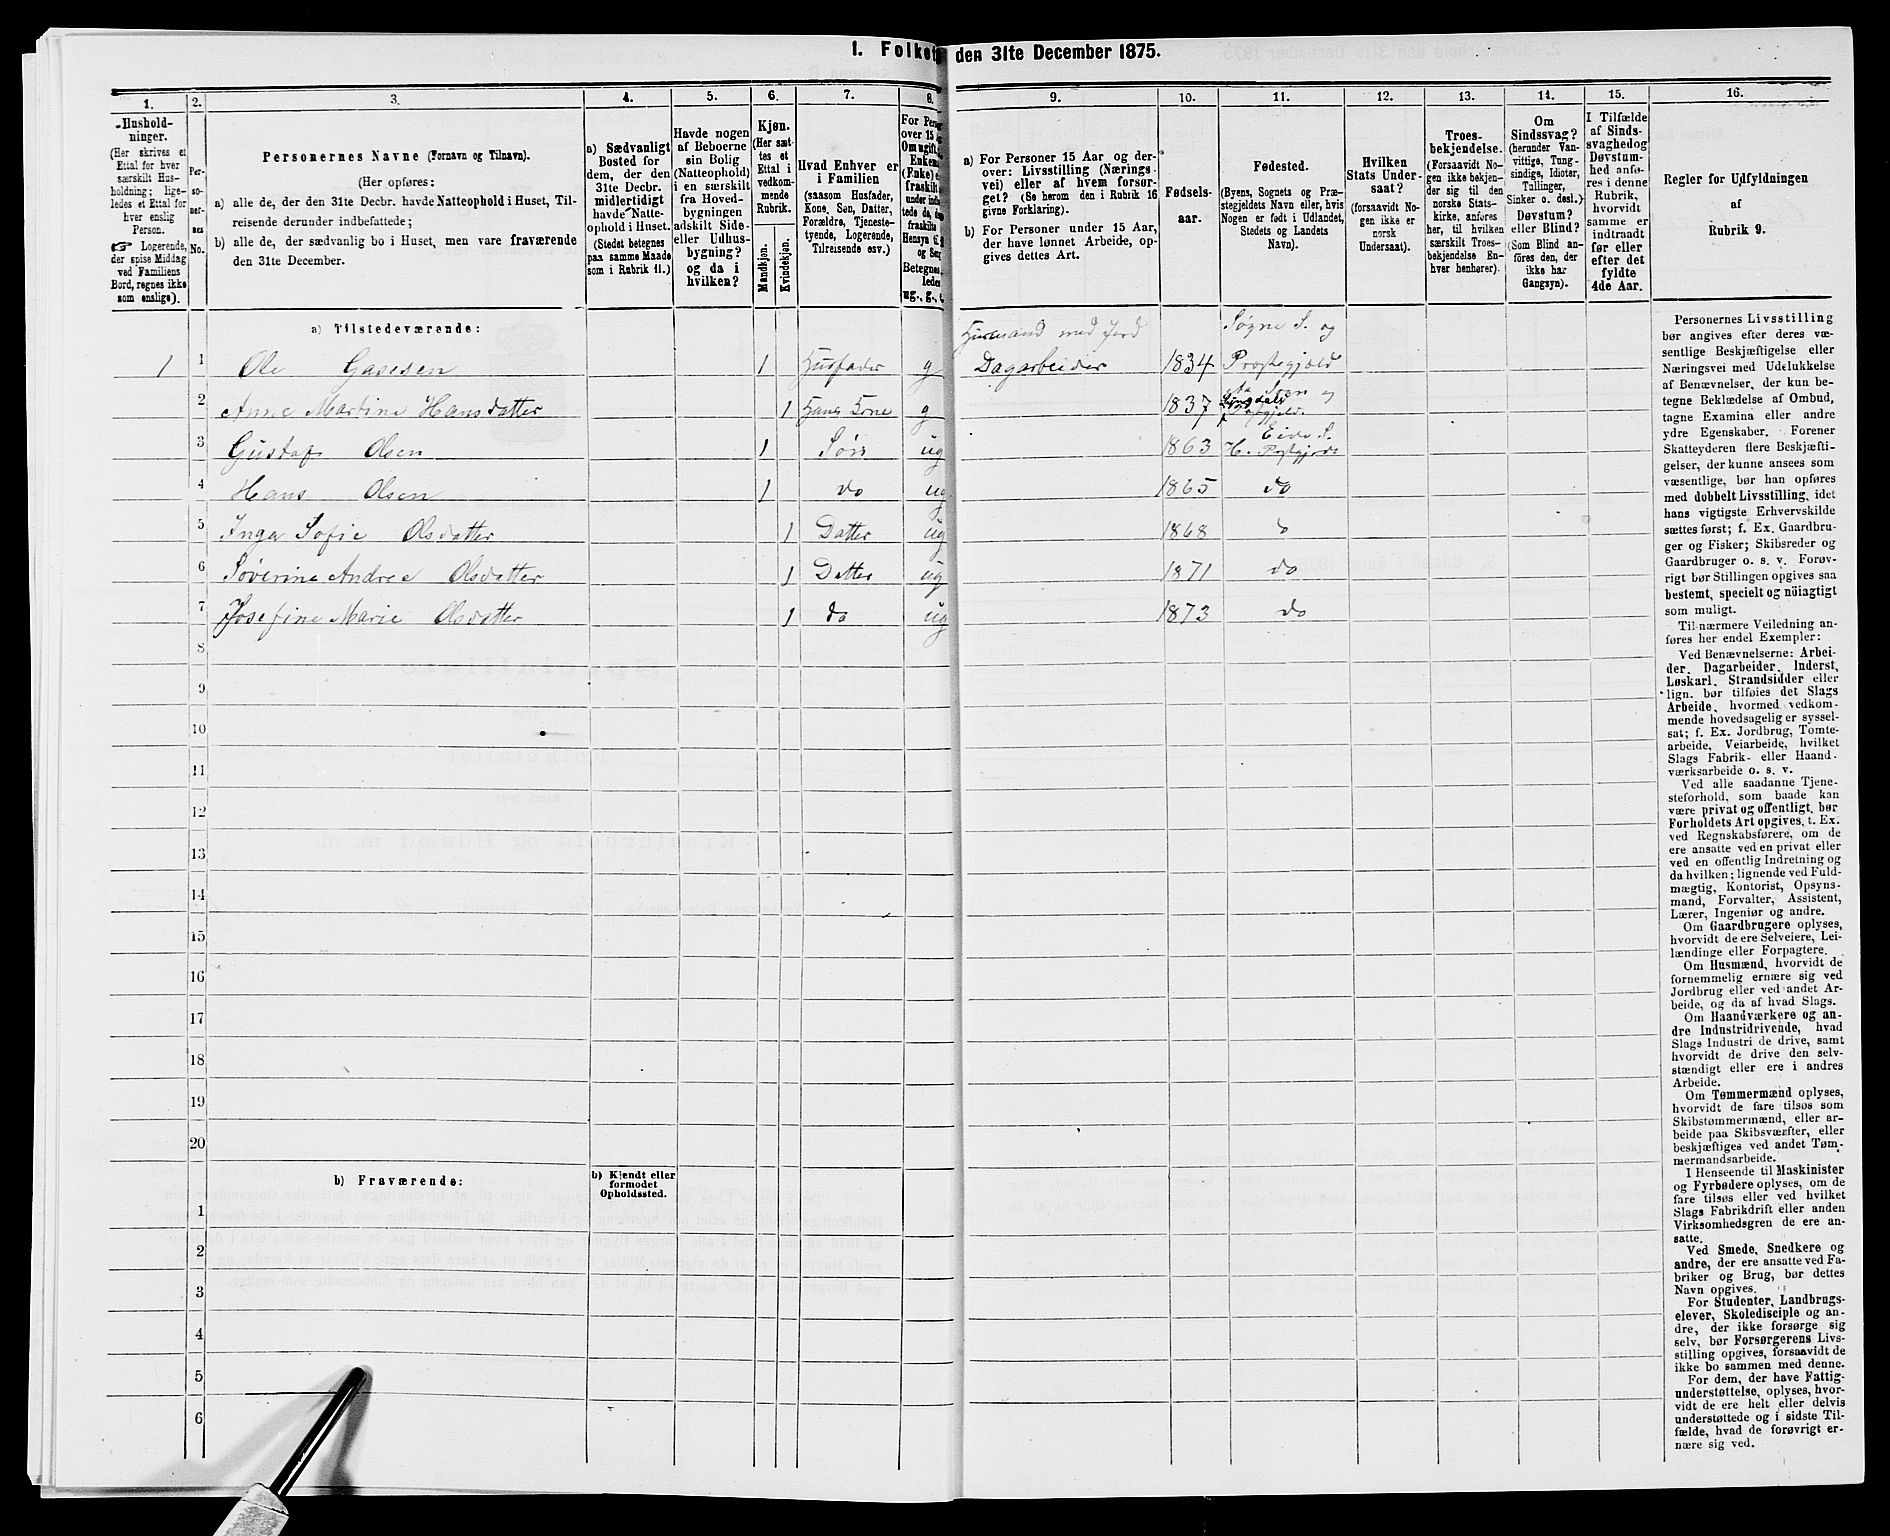 1. Folket den 31te December 1875.
1. 2. 3. 4. 5. 6. 7. 8. 9. 10. 11. 12. 13. 14. 15. 16.
Hushold-
ninger.
(Her skrives et
Ettal for hver
særskilt Hus-
holdning; lige-
ledes et Ettal for
hver enslig
Person.
☞ Logerende,
der spise Middag
ved Familiens
Bord, regnes ikke
som enslige).
Per-
so-
ner-
nes
No.
Personernes Navne (Fornavn og Tilnavn).
(Her opføres:
a) alle de, der den 31te Decbr. havde Natteophold i Huset, Til-
reisende derunder indbefattede;
b) alle de, der sædvanlig bo i Huset, men vare fraværende
den 31te December.
a) Sædvanligt
Bosted for
dem, der den
31te Decbr.
midlertidigt
havde Natte-
ophold i Huset.
(Stedet betegnes
paa samme Maade
som i Rubrik 11.)
Havde nogen
af Beboerne
sin Bolig
(Natteophold)
i en særskilt
fra Hoved-
bygningen
adskilt Side-
eller Udhus-
bygning?
og da i
hvilken?
Kjøn.
(Her sæt-
tes et
Ettal i
vedkom-
mende
Rubrik.
Mandkjøn.
Kvindekjøn.
Hvad Enhver er
i Familien
(saasom Husfader,
Kone, Søn, Datter,
Forældre, Tjeneste-
tyende, Logerende,
Tilreisende osv.)
For Pers
over 15
Om ugift,
Enkem
(Enke)
fraskilt
under
tede de,
fraskilte
Hensyn
og Seng
Betegnes
ledes
ug., g.,
a) For Personer 15 Aar og der-
over: Livsstilling (Nærings-
vei) eller af hvem forsør-
get? (Se herom den i Rubrik 16
givne Forklaring).
b) For Personer under 15 Aar,
der have lønnet Arbeide, op-
gives dettes Art.
Fødsels-
aar.
Fødested.
(Byens, Sognets og Præ-
stegjeldets Navn eller, hvis
Nogen er født i Udlandet,
Stedets og Landets
Navn).
Hvilken
Stats Under-
saat?
(forsaavidt No-
gen ikke er
norsk
Undersaat).
Troes-
bekjendelse.
(Forsaavidt No-
gen ikke bekjen-
der sig til den
norske Stats-
kirke, anføres
her, til hvilken
særskilt Troes-
bekjendelse En-
hver henhører).
Om
Sindssvag?
(herunder Van-
vittige, Tung-
sindige, Idioter,
Tallinger,
Sinker o. desl.)
Døvstum?
eller Blind?
(Som Blind an-
føres den, der
ikke har
Gangsyn).
I Tilfælde
af Sinds-
svaghed og
Døvstum-
hed anfø-
res i denne
Rubrik,
hvorvidt
samme er
indtraadt
før eller
efter det
fyldte
4de Aar.
Regler for Udfyldningen
af
Rubrik 9.
a) Tilstedeværende:
Husmand med Jord Søgne S. og
1 1 Ole Gasesen 1 Husfader g Dagarbeider 1834 Prestegjeld
2 Anne Martine Hansdatter 1 Hans Kone g 1837
3 Gustaf Olsen 1 Søn ug 1863 Eide S.
4 Hans Olsen 1 do ug 1865 do
5 Inga Sofie Olsdatter 1 Datter ug 1868 do
6 Søverine Andrea Olsdatter 1 Datter ug 1871 do
7 Josefine Marie Olsdatter 1 do ug 1873 do
8
9
10
11
12
13
14
15
16
17
18
19
20
b) Fraværende:
b) Kjendt eller
formodet
Opholdssted.
1
2
3
4
5
6
Personernes Livsstilling
bør angives efter deres væ-
sentlige Beskjæftigelse eller
Næringsvei med Udelukkelse
af Benævnelser, der kun be-
tegne Beklædelse af Ombud,
tagne Examina eller andre
ydre Egenskaber. Forener
Skatteyderen flere Beskjæfti-
gelser, der kunne ansees som
væsentlige, bør han opføres
med dobbelt Livsstilling, idet
hans vigtigste Erhvervskilde
sættes først; f. Ex. Gaardbru-
ger og Fisker; Skibsreder og
Gaardbruger o. s. v. Forøv-
rigt bør Stillingen opgives saa
bestemt, specielt og nöiagtigt
som muligt.
Til nærmere Veiledning an-
føres her endel Exempler:
Ved Benævnelserne: Arbei-
der, Dagarbeider, Inderst,
Løskarl, Strandsidder eller
lign. bør tilføies det Slags
Arbeide, hvormed vedkom-
mende hovedsagelig er syssel-
sat; f. Ex. Jordbrug, Tomte-
arbeide, Veiarbeide, hvilket
Slags Fabrik- eller Haand-
værksarbeide o. s. v.
Ved alle saadanne Tjene-
steforhold, som baade kan
være privat og offentligt, bør
Forholdets Art opgives, t. Ex.
ved Regnskabsførere, om de
ere ansatte ved en privat eller
ved en offentlig Indretning og
da hvilken; lignende ved Fuld-
mægtig, Kontorist, Opsyns-
mand, Forvalter, Assistent,
Lærer, Ingeniør og andre.
Om Gaardbrugere oplyses,
hvorvidt de ere Selveiere, Lei-
lændinge eller Forpagtere.
Om Husmænd, hvorvidt de
fornemmelig ernære sig ved
Jordbrug eller ved andet Ar-
beide, og da af hvad Slags.
Om Haandværkere og an-
dre Industridrivende, hvad
Slags Industri de drive, samt
hvorvidt de drive den selv-
stændigt eller ere i andres
Arbeide.
Om Tømmermænd oplyses,
hvorvidt de fare tilsøs som
Skibstømmermænd, eller ar-
beide paa Skibsværfter, eller
beskjæftiges ved andet Tøm-
mermandsarbeide.
I Henseende til Maskinister
og Fyrbødere oplyses, om de
fare tilsøs eller ved hvilket
Slags Fabrikdrift eller anden
Virksomhedsgren de ere an-
satte.
Ved Smede, Snedkere og
andre, der ere ansatte ved Fa-
briker og Brug, bør dettes
Navn opgives.
For Studenter, Landbrugs-
elever, Skoledisciple og an-
dre, der ikke forsørge sig
selv, bør Forsørgerens Livs-
stilling opgives, forsaavidt de
ikke bo sammen med denne.
For dem, der have Fattig-
understøttelse, oplyses, hvor-
vidt de ere helt eller delvis
understøttede og i sidste Til-
fælde, hvad de forøvrigt er-
nære sig ved.